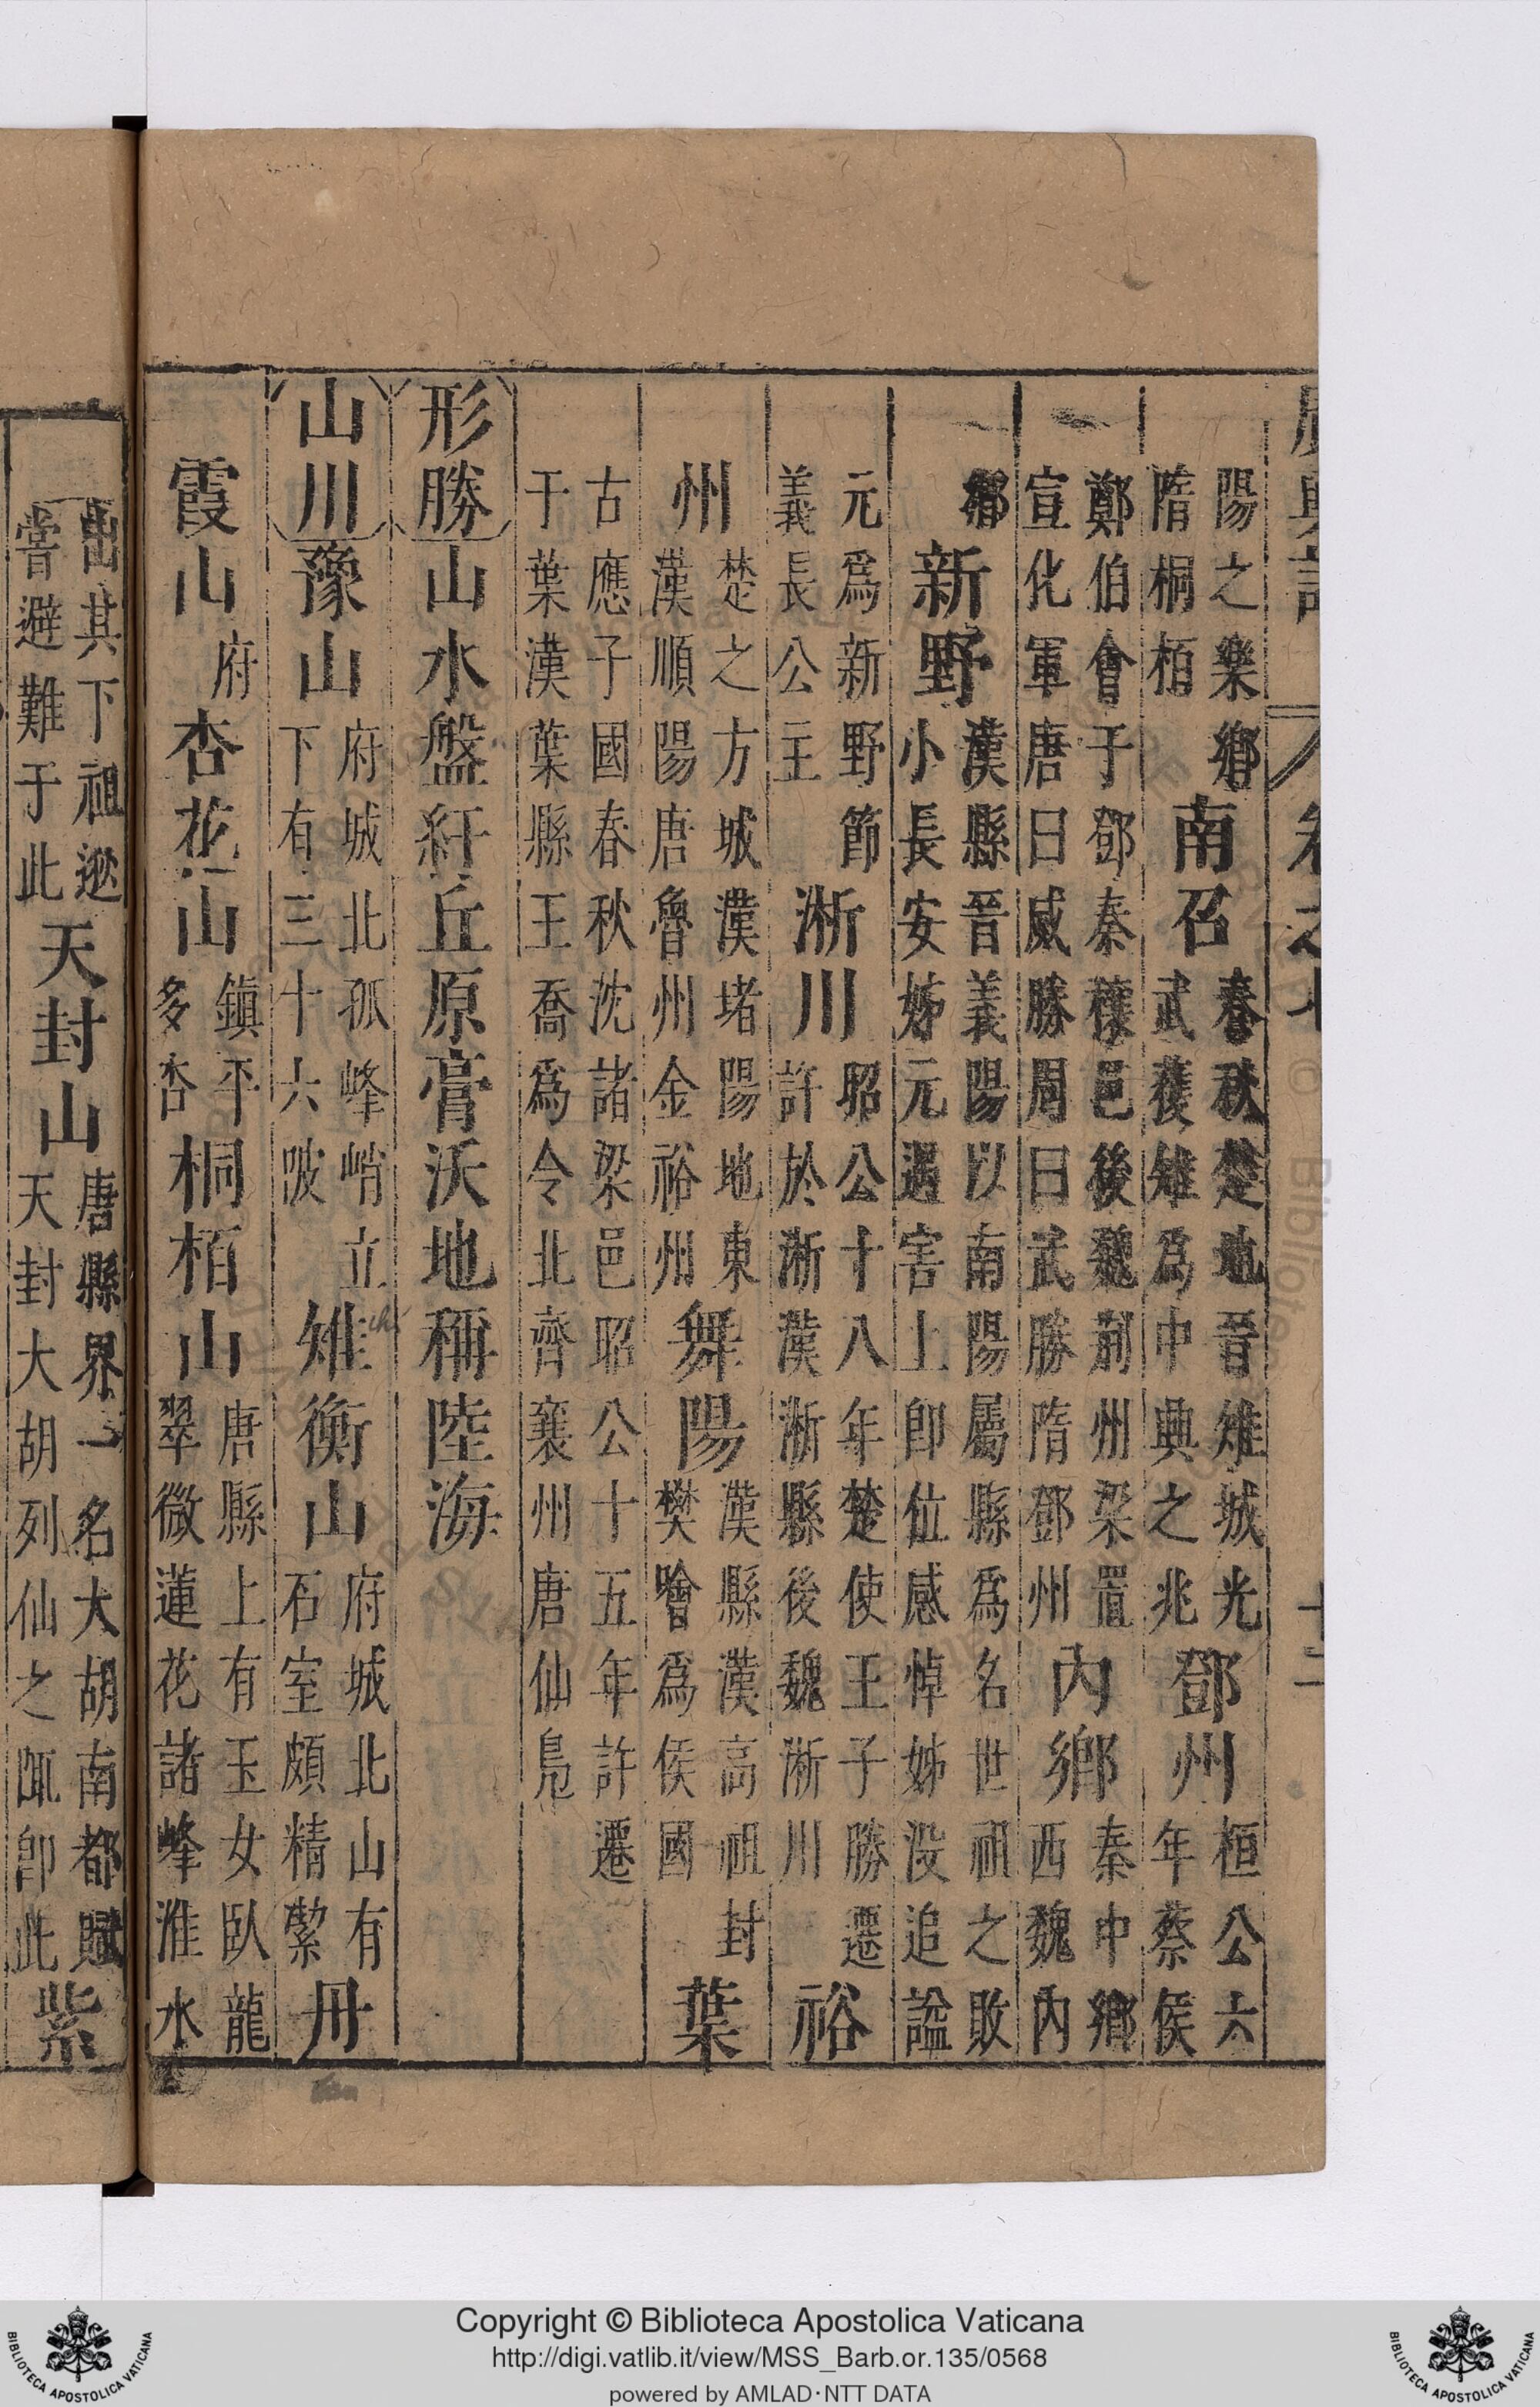 陽之樂鄉
隋桐栢
南召
春秋楚地晉雉城光
武𫉬雉爲中興之兆
鄧州
桓公六
年蔡侯
鄭伯會于鄧秦穰邑後魏荊州梁置
宣化軍唐曰威勝周曰武勝隋鄧州
內鄉
秦中鄉
西魏內
鄉
新野
漢縣晉義陽以南陽屬縣爲名世祖之敗
小長安姊元遇害上即位感悼姊沒追謚
元爲新野節
義長公主
淅川
昭公十八年楚使王子勝遷
許於淅漢淅縣後魏淅川
裕
州
楚之方城漢堵陽地東
漢順陽唐魯州金裕州
舞陽
漢縣漢高祖封
樊噲爲侯國
葉
古應子國春秋沈諸梁邑昭公十五年許遷
于葉漢葉縣王喬爲令北齊襄州唐仙鳧
形勝
山水盤紆丘原膏沃地稱陸海
山川
豫山
府城北孤峰峭立
下有三十六陂
雉衡山
府城北山有
石室頗精縏
丹
霞山
府
杏花山
鎮平
多杏
桐栢山
唐縣上有玉女臥龍
翠微蓮花諸峰淮水
出其下祖逖
嘗避難于此
天封山
唐縣界一名大胡南都賦
天封大胡列仙之陬卽此
紫
Copyright © Biblioteca Apostolica Vaticana
http://digi.vatlib.it/view/MSS_Barb.or.135/0568
powered by AMLAD·NTT DATA
BIBLIOTECA APOSTOLICA VATICANA
BIBLIOTECA APOSTOLICA VATICANA